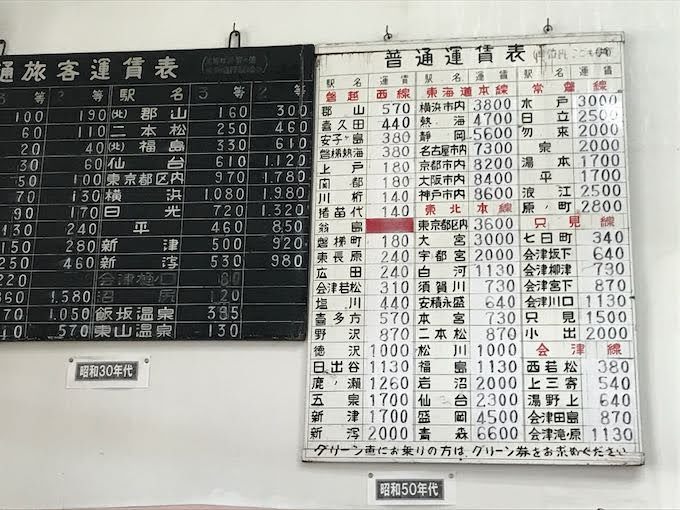 通旅客運賃表
等 等 駅名 3等 2等
100 190 (北)郡山 160 300
60 110 二本松 250 460
20 40 (北)福島 330 610
30 60 仙台 610 1.120
50 100 東京都区内 970 1.780
70 130 横浜 1.080 1.980
90 170 日光 720 1.320
130 240 平 460 850
150 280 新津 500 920
250 460 新泻 530 980
220 会津樋口 80
360 1.580 沼尻 120
70 1.050 飯坂温泉 395
10 570 東山温泉 130
昭和30年代
普通運賃表
駅名 運賃 駅名 運賃 駅名 運賃
磐越西線 東海道本線 常磐線
郡山 570 横浜市内 3800 水戸 3000
喜久田 440 熱海 4700 日立 2500
安子ヶ島 380 静岡 5600 勿来 2000
磐梯熱海 380 名古屋市内 7300 泉 2000
上戸 180 京都市内 8200 湯本 1700
関都 180 大阪市内 8400 平 1700
川桁 140 神戸市内 8600 浪江 2500
猪苗代 140 東北本線 原ノ町 2800
翁島 東京都区内 3600 只見線
磐梯町 180 大宮 3000 七日町 340
東長原 240 宇都宮 2000 会津坂下 640
広田 240 白河 1130 会津柳津 730
会津若松 310 須賀川 730 会津宮下 870
塩川 440 安積永盛 640 会津川口 1130
喜多方 570 本宮 730 只見 1500
野沢 870 二本松 870 小出 2000
徳沢 1000 松川 1000 会津線
日出谷 1130 福島 1130 西若松 380
鹿ノ瀬 1260 岩沼 2000 上三寄 540
五泉 1700 仙台 2300 湯野上 640
新津 1700 盛岡 4500 会津田島 870
新泻 2000 青森 6600 会津滝ノ原 1130
グリーン車にお乗りの方は、グリーン券をお求めください
昭和50年代